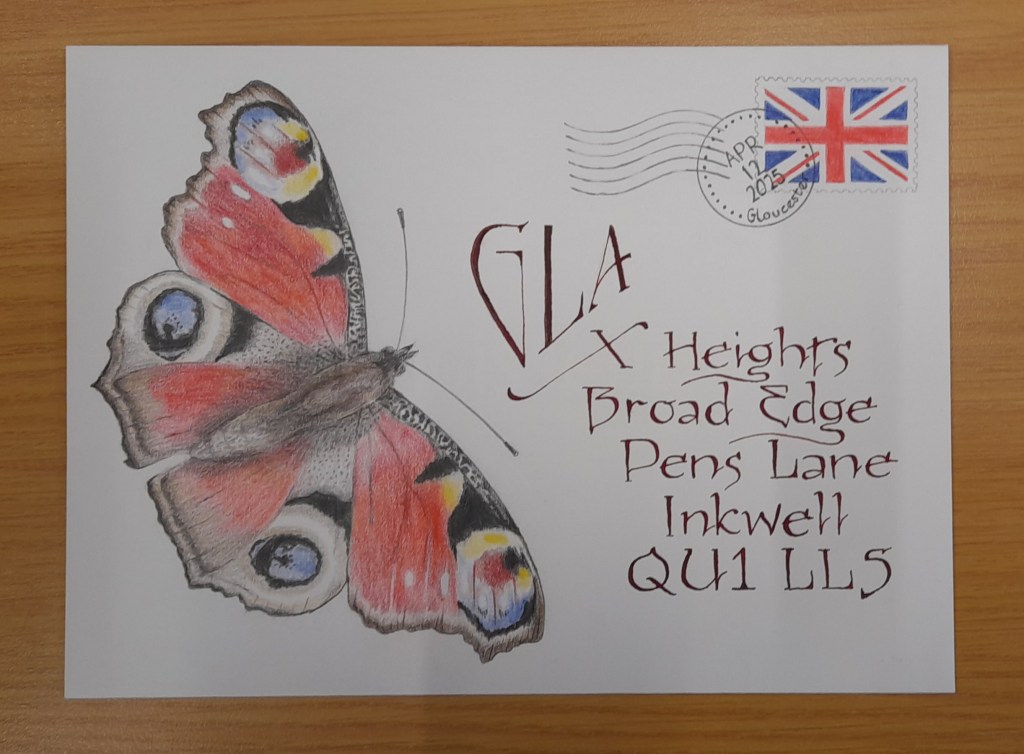 APR
12
2025
Gloucester
GLA
X Heights
Broad Edge
Pens Lane
Inkwell
QU1 LL5